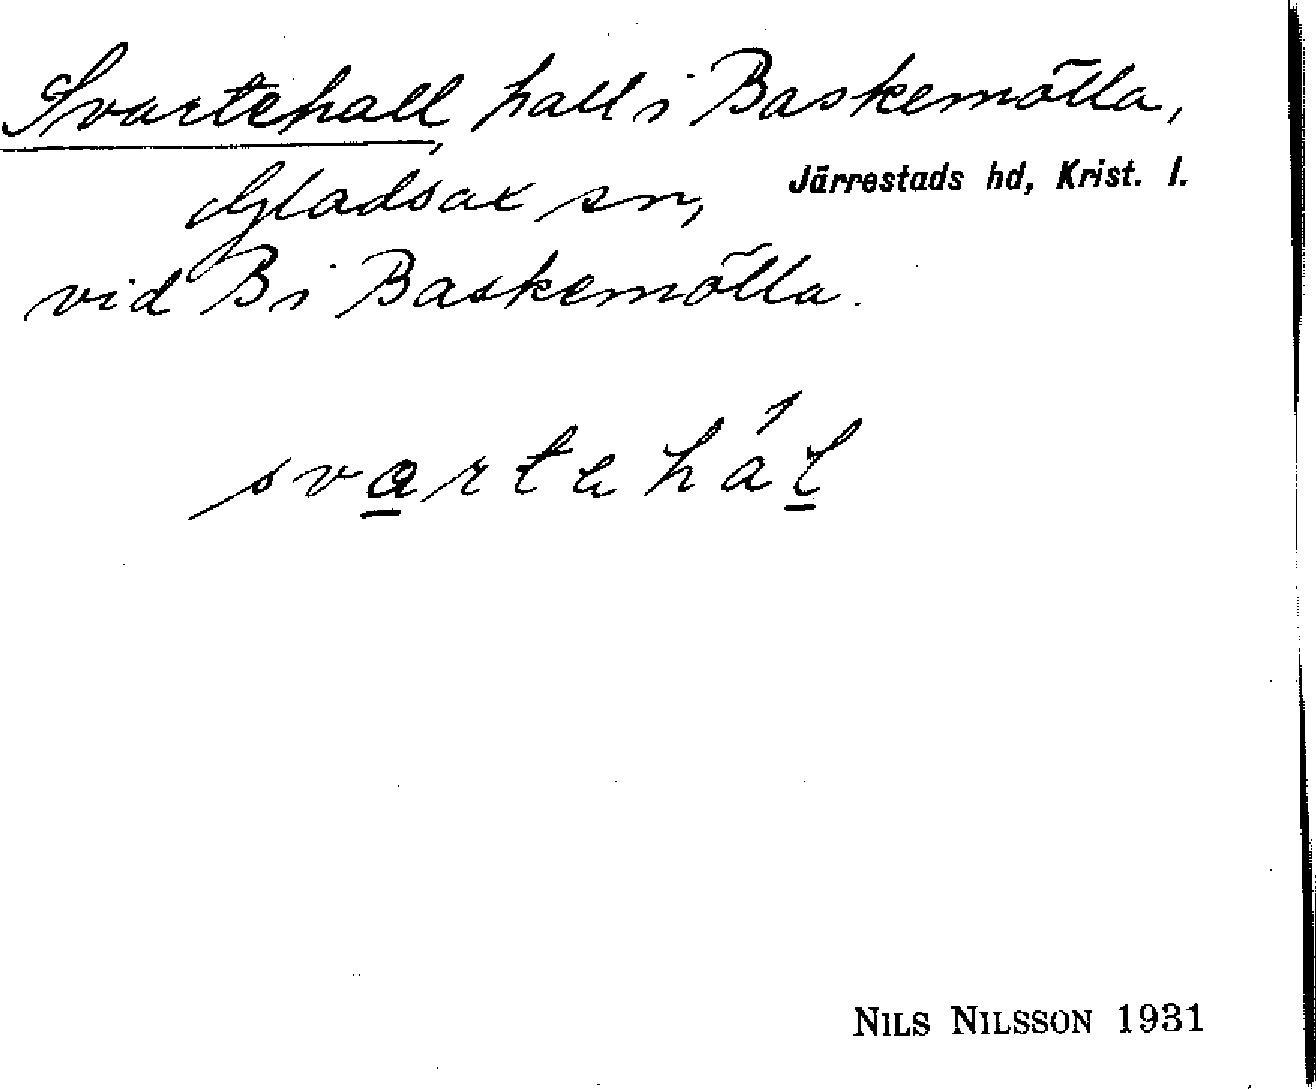 Svartehall, hall i Baskemölla,
Gladsax sn, Järrestads hd, Krist. l.
vid B i Baskemölla.
svartahál
NILS NILSSON 1931